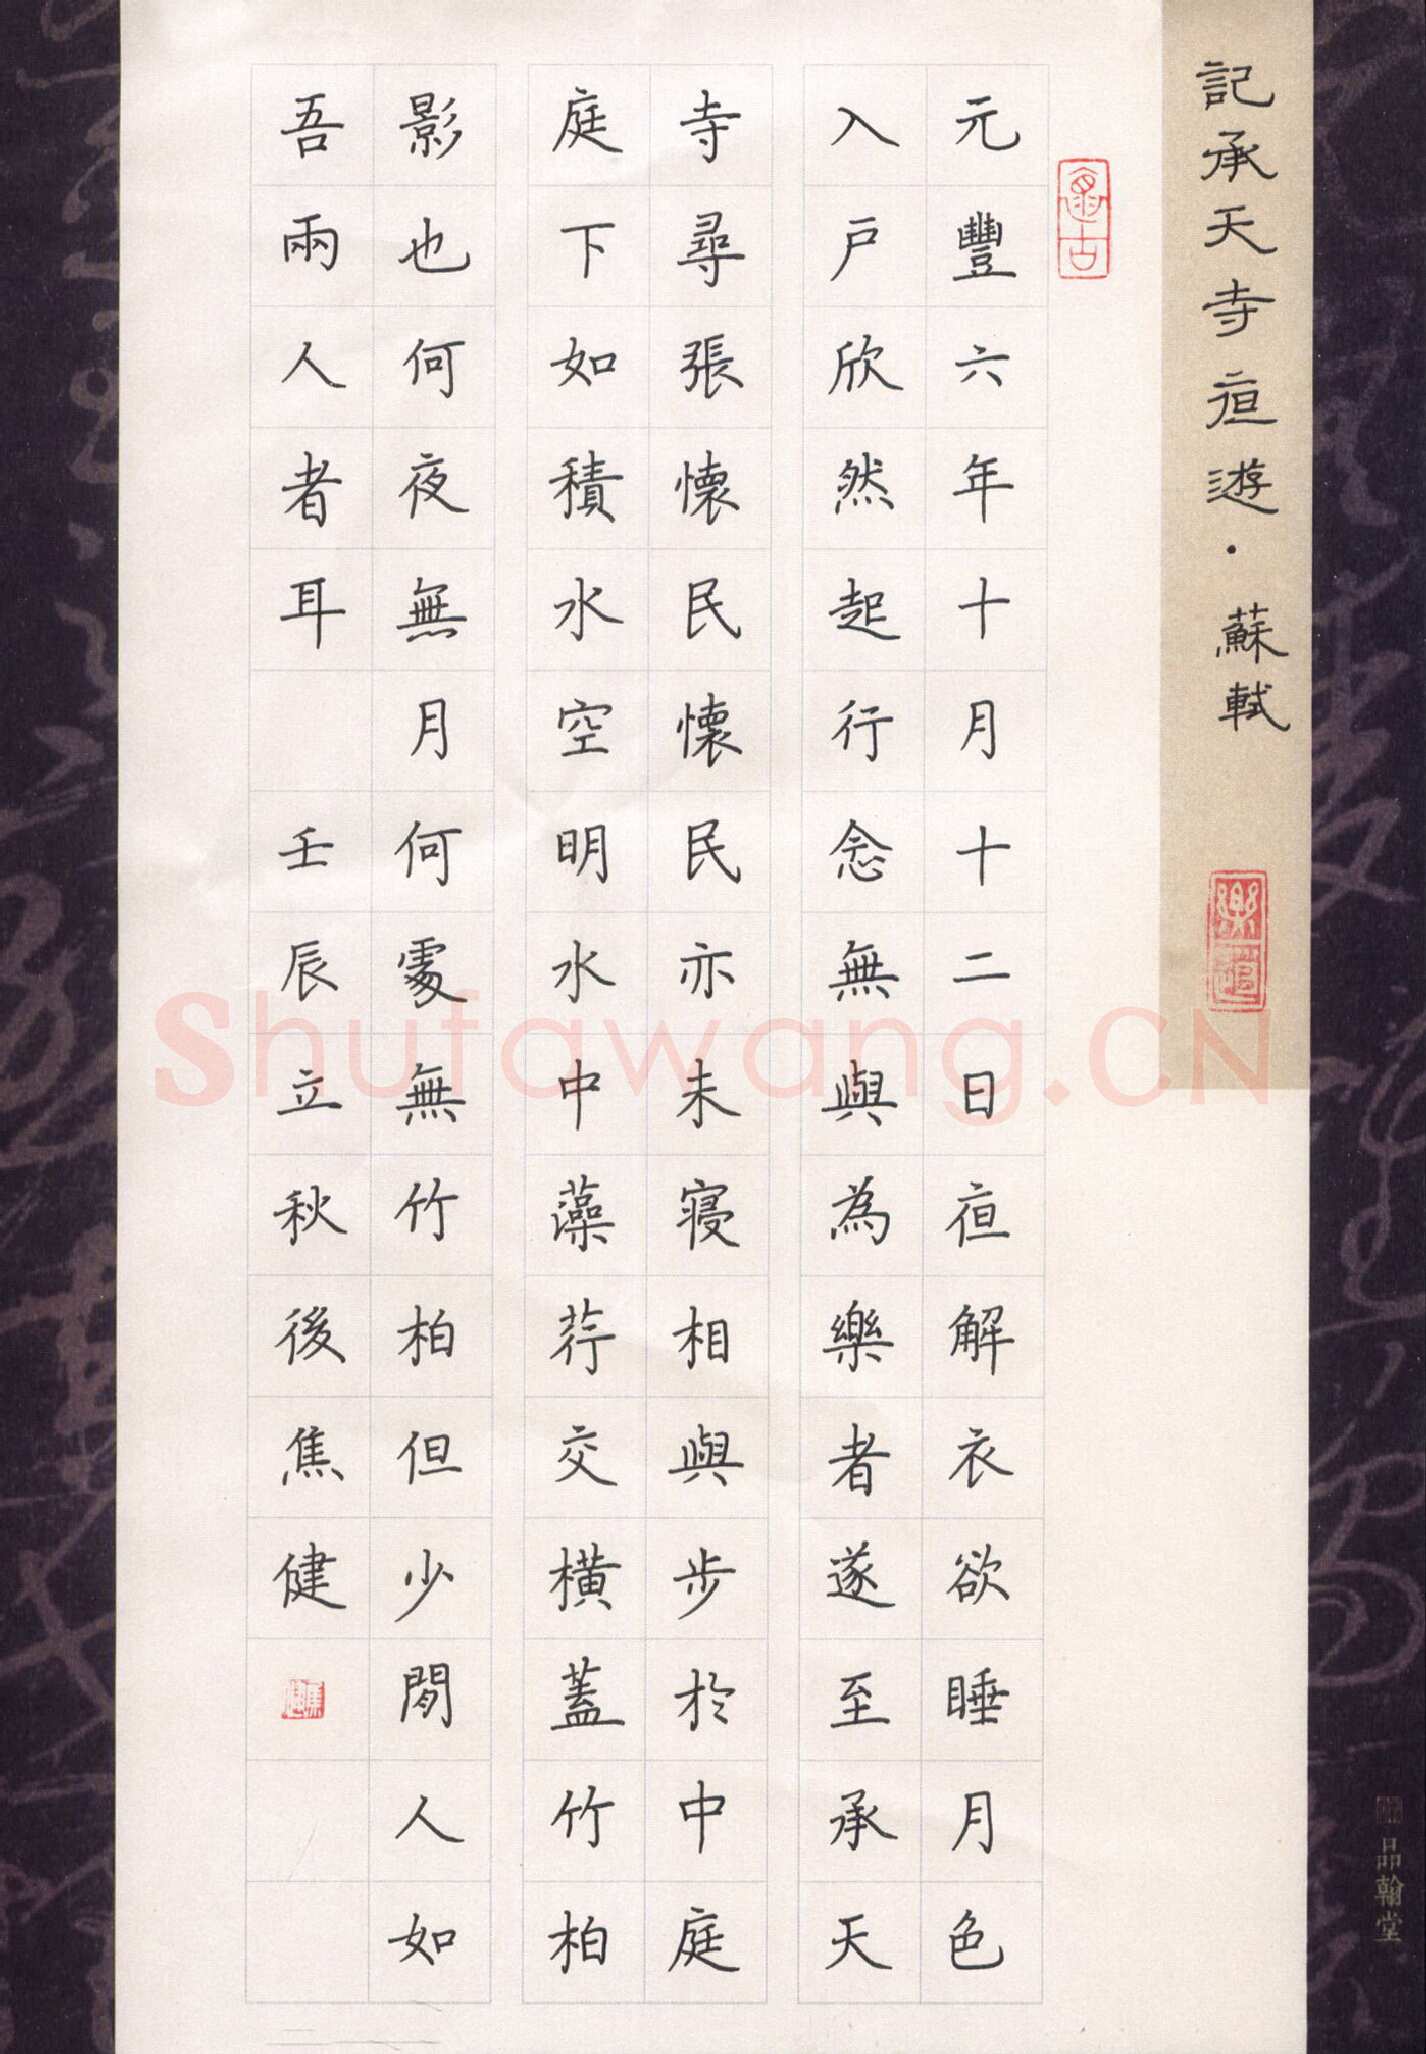 記承天寺夜遊·蘇軾
元豐六年十月十二日夜解衣欲睡月色
入戶欣然起行念無與為樂者遂至承天
寺尋張懷民懷民亦未寢相與步於中庭
庭下如積水空明水中藻荇交橫蓋竹柏
影也何夜無月何處無竹柏但少閒人如
吾兩人者耳 壬辰立秋後焦健
焦健
品翰堂
Shufawang.CN